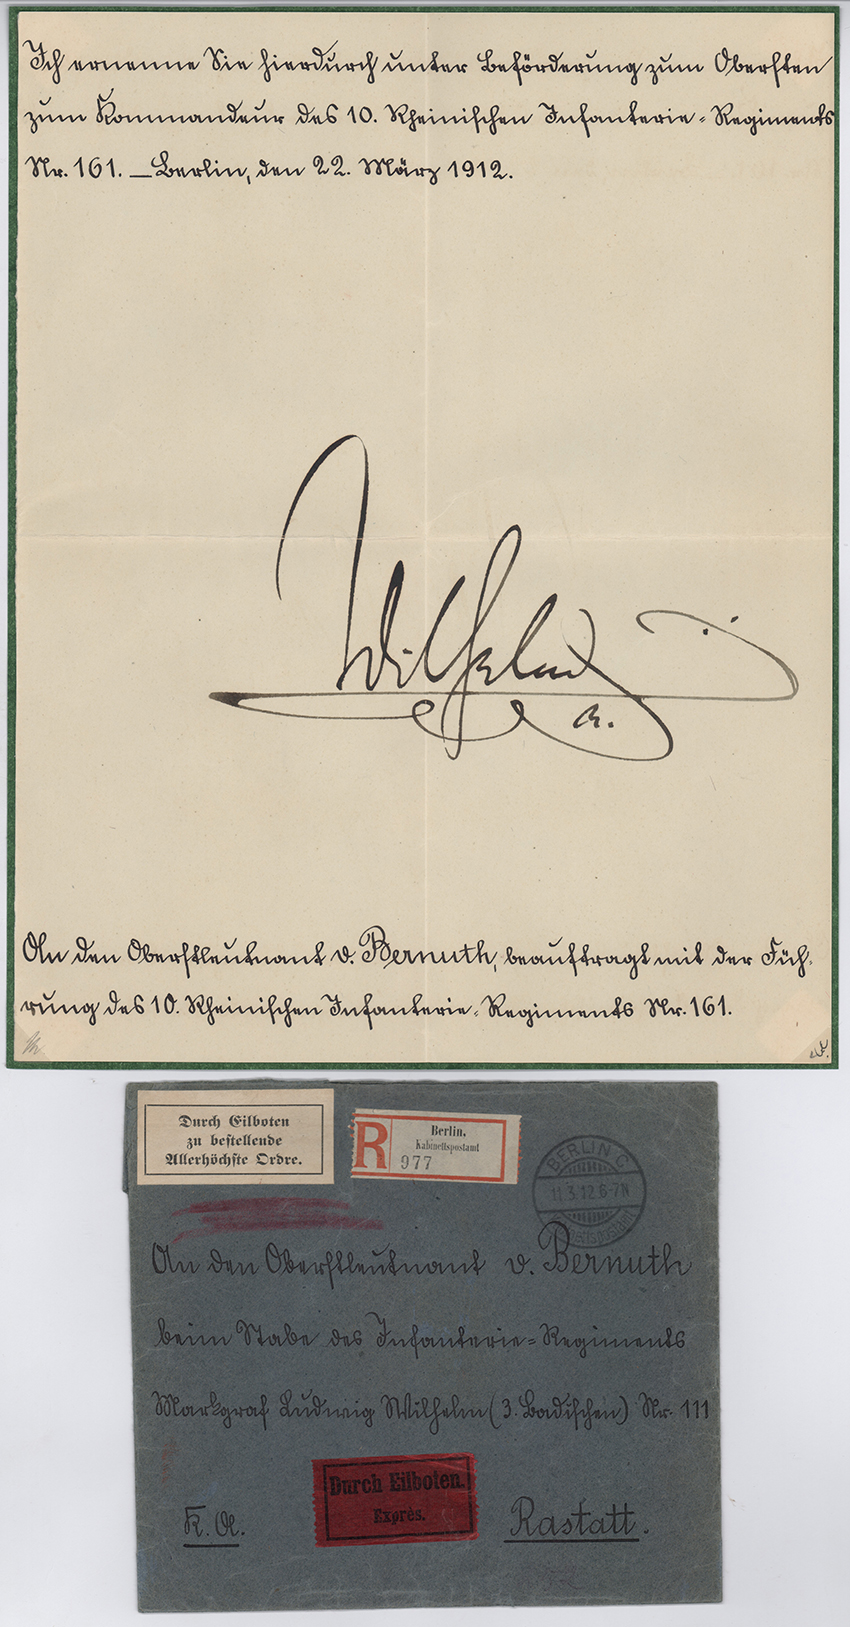 Ich ernenne Sie hierdurch unter Beförderung zum Obersten
zum Kommandeur des 10. Rheinischen Infanterie-Regiments
Nr. 161. — Berlin, den 22. März 1912.
Wilhelm
R.
An den Oberstleutnant v. Bernuth, beauftragt mit der Füh-
rung des 10. Rheinischen Infanterie-Regiments Nr. 161.
Durch Eilboten
zu bestellende
Allerhöchste Ordre.
R
Berlin,
Kabinettspostamt
977
BERLIN C.
6-7N
An den Oberstleutnant v. Bernuth
beim Stabe des Infanterie-Regiments
Markgraf Ludwig Wilhelm (3. Badischen) Nr. 111
Durch Eilboten.
Exprès.
K. O.
Rastatt.